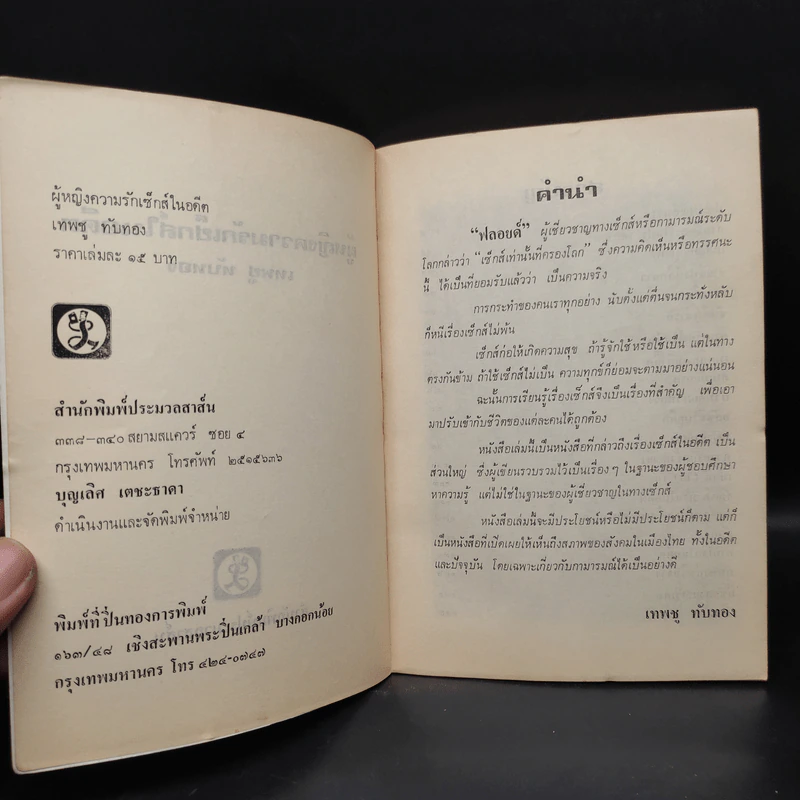 ผู้หญิงความรักเซ็กส์ในอดีต
เทพชู ทับทอง
ราคาเล่มละ ๑๕ บาท
สำนักพิมพ์ประมวลสาส์น
๓๓๘–๓๔๐ สยามสแควร์ ซอย ๔
กรุงเทพมหานคร โทรศัพท์ ๒๕๑๕๖๓๖
บุญเลิศ เตชะธาดา
ดำเนินงานและจัดพิมพ์จำหน่าย
พิมพ์ที่ ปิ่นทองการพิมพ์
๑๖๓/๔๘ เชิงสะพานพระปิ่นเกล้า บางกอกน้อย
กรุงเทพมหานคร โทร ๔๒๔-๐๗๔๗
คำนำ
“ฟลอยด์” ผู้เชี่ยวชาญทางเซ็กส์หรือกามารมณ์ระดับ
โลกกล่าวว่า “เซ็กส์เท่านั้นที่ครองโลก” ซึ่งความคิดเห็นหรือทรรศนะ
นี้ ได้เป็นที่ยอมรับแล้วว่า เป็นความจริง
การกระทำของคนเราทุกอย่าง นับตั้งแต่ตื่นจนกระทั่งหลับ
ก็หนีเรื่องเซ็กส์ไม่พ้น
เซ็กส์ก่อให้เกิดความสุข ถ้ารู้จักใช้ หรือใช้เป็น แต่ในทาง
ตรงกันข้าม ถ้าใช้เซ็กส์ไม่เป็น ความทุกข์ก็ย่อมจะตามมาอย่างแน่นอน
ฉะนั้นการเรียนรู้เรื่องเซ็กส์จึงเป็นเรื่องที่สำคัญ เพื่อเอา
มาปรับเข้ากับชีวิตของแต่ละคนได้ถูกต้อง
หนังสือเล่มนี้เป็นหนังสือที่กล่าวถึงเรื่องเซ็กส์ในอดีต เป็น
ส่วนใหญ่ ซึ่งผู้เขียนรวบรวมไว้เป็นเรื่อง ๆ ในฐานะของผู้ชอบศึกษา
หาความรู้ แต่ไม่ใช่ในฐานะของผู้เชี่ยวชาญในทางเซ็กส์
หนังสือเล่มนี้จะมีประโยชน์หรือไม่มีประโยชน์ก็ตาม แต่ก็
เป็นหนังสือที่เปิดเผยให้เห็นถึงสภาพของสังคมในเมืองไทย ทั้งในอดีต
และปัจจุบัน โดยเฉพาะเกี่ยวกับกามารมณ์ได้เป็นอย่างดี
เทพชู ทับทอง